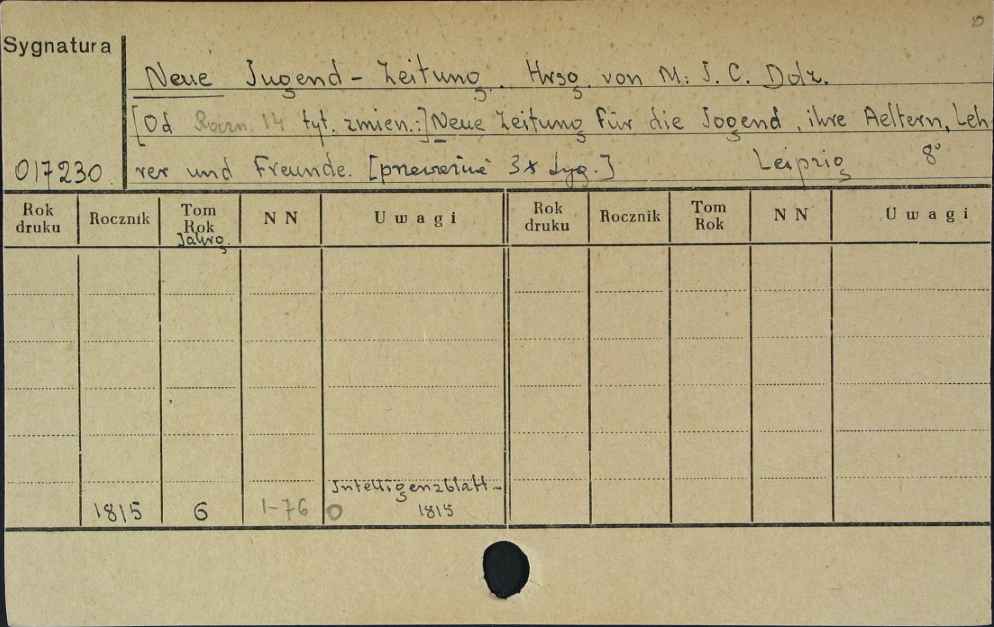 Sygnatura
Neue Jugend-Zeitung. Hrsg. von M: J. C. Dolz.
[Od Roczn. 14 tyt. zmien.:] Neue Zeitung für die Jugend, ihre Aeltern, Leh-
017230 rer und Freunde. [przeważnie 3x tyg.] Leipzig 8°
Rok druku Rocznik Tom Rok Jahrg. NN Uwagi Rok druku Rocznik Tom Rok NN Uwagi
Intelligenzblatt-
1815 6 1-76 0 1815